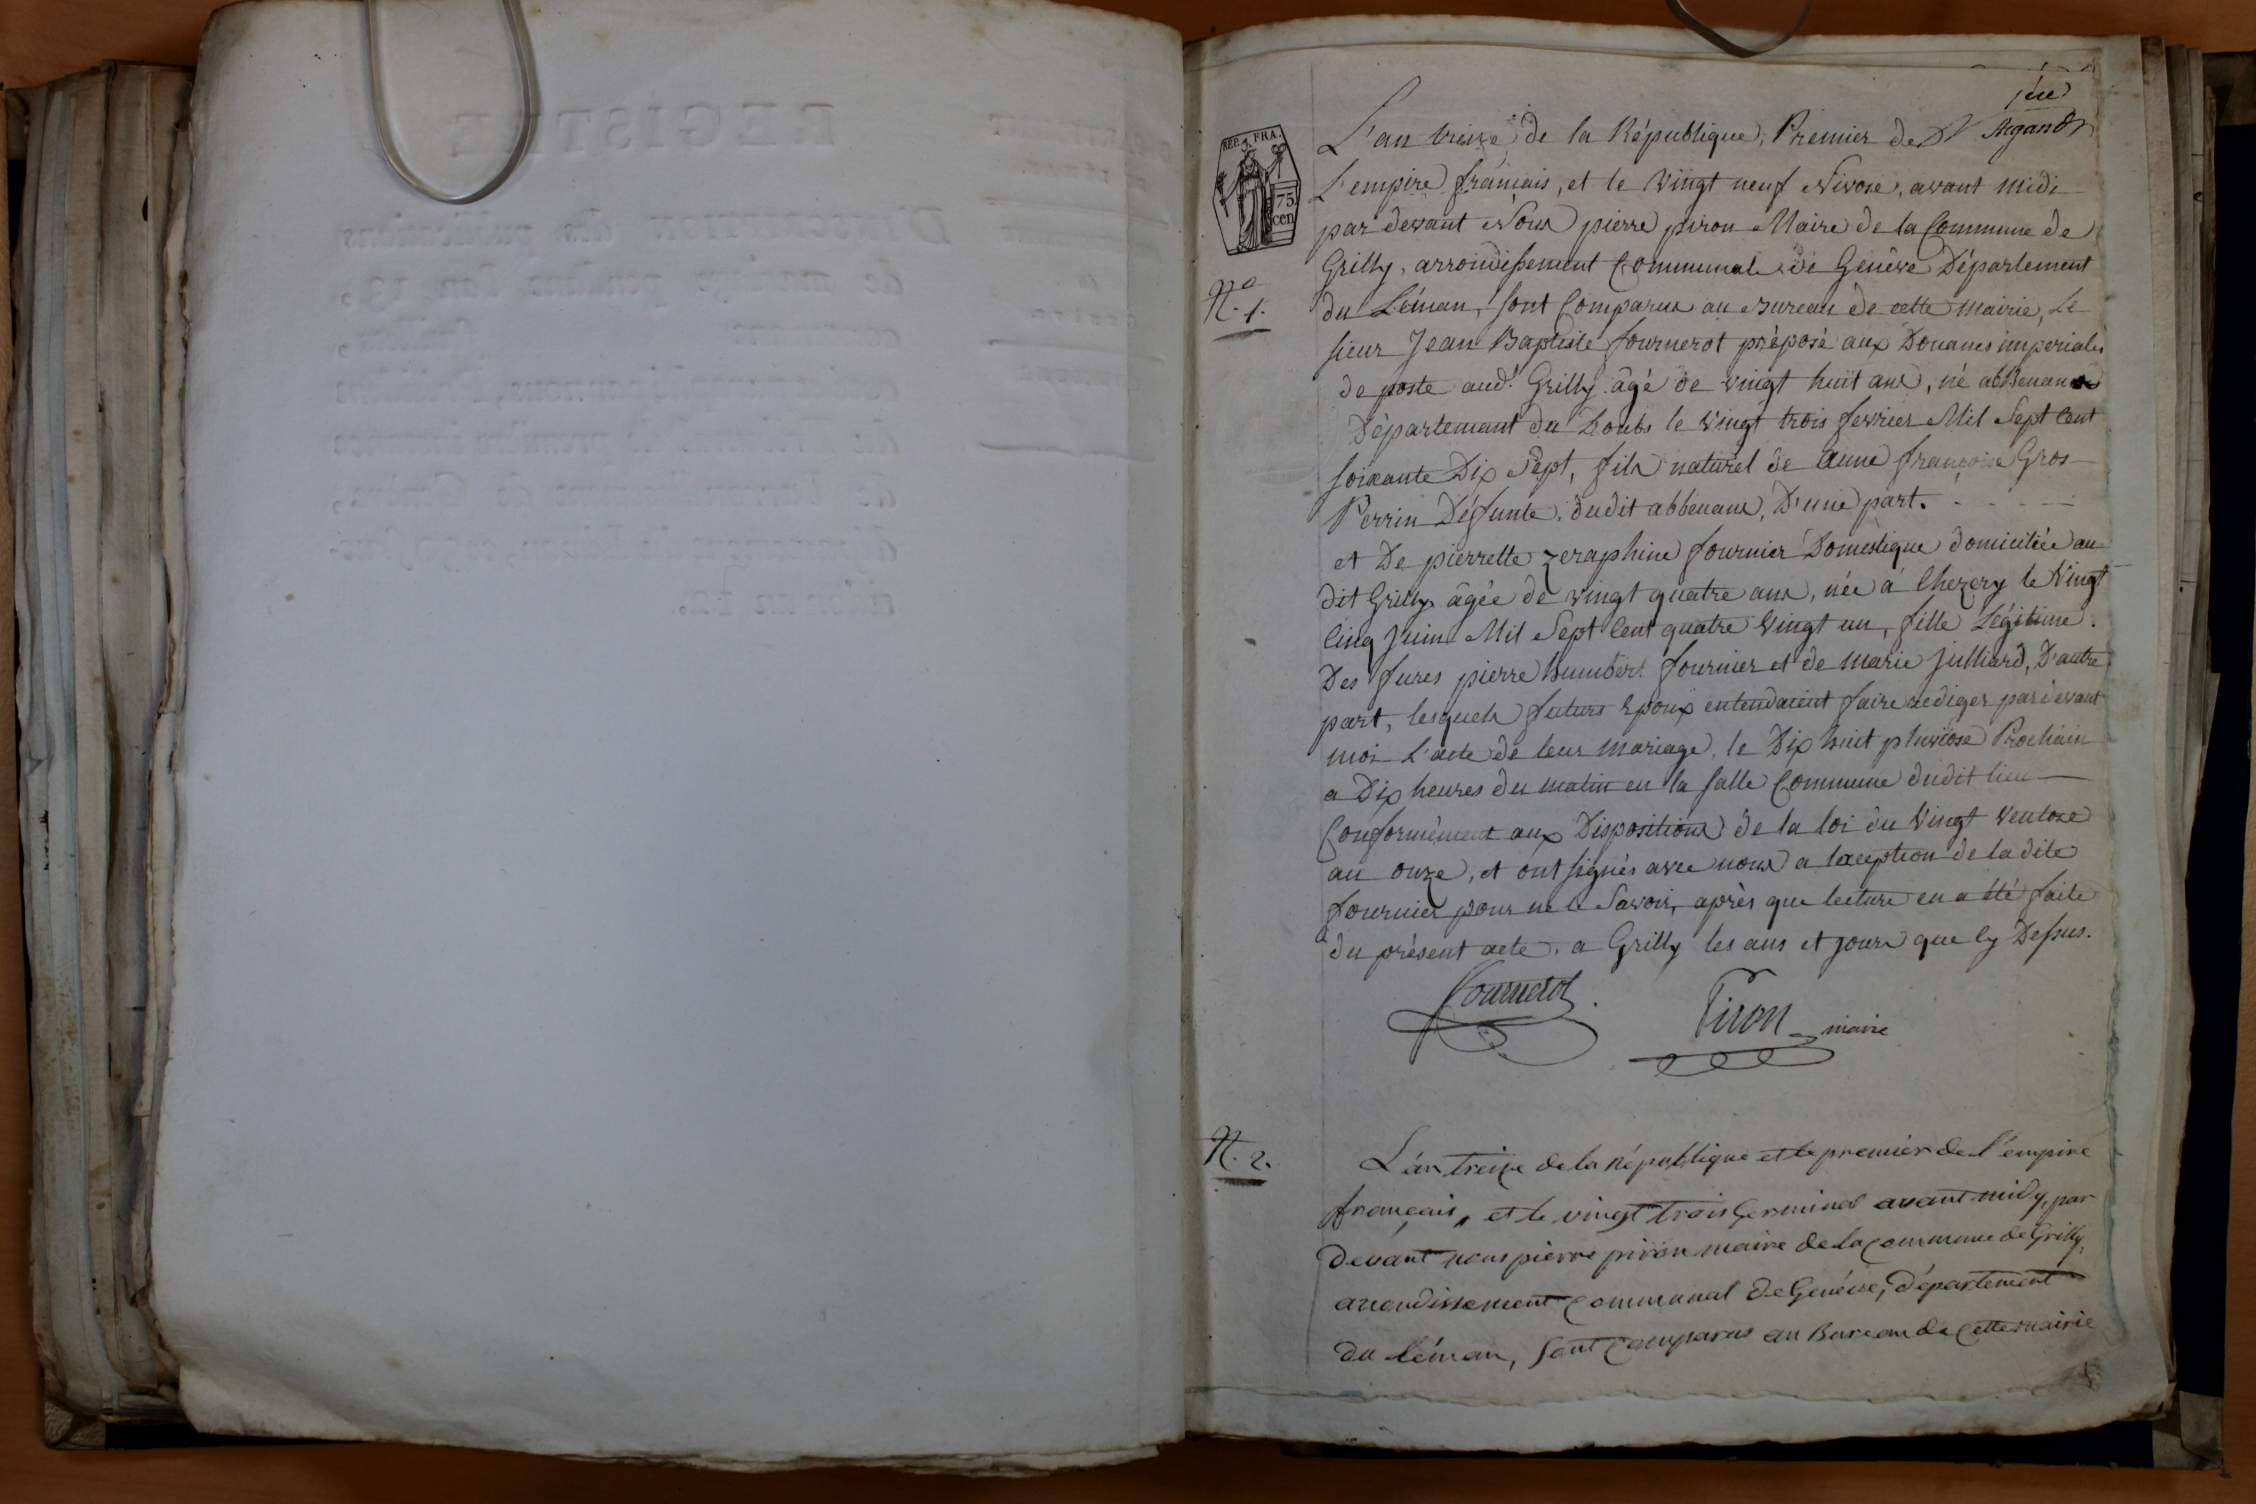 1ere
Argand
REP. FRA.
75
cen
L'an treize de la République, Premier de
L'empire français, et le Vingt neuf Nivose, avant midi
par devant Nous pierre piron Maire de la Commune de
Grilly, arrondissement Communal de Genève Département
N.o 1.
du Léman, sont Comparus au Bureau de cette mairie, Le
sieur Jean Baptiste fournerot préposé aux Douanes imperiales
de poste aud.t Grilly âgé de vingt huit ans, né abbenans
Département du Doubs le Vingt trois fevrier Mil Sept Cent
soixante Dix Sept, fils naturel de Anne françoise Gros
Perrin Défunte, dudit abbenans, D'une part.
et De pierrette zeraphine fournier Domestique domiciliée au
dit Grilly âgée de vingt quatre ans, née à Chezery le Vingt
Cinq Juin Mil Sept Cent quatre Vingt un, fille Légitime
Des fures pierre humbert fournier et de Marie Julliard, D'autre
part, lesquels futurs Epoux entendaient faire rediger pardevant
moi L'acte de leur Mariage, le Dix huit pluviose Prochain
a Dix heures du matin en la salle Commune dudit lieu
Conformément aux Dispositions de la loi du Vingt Ventose
an onze, et ont signés avec nous a lexeption de la dite
fournier pour ne le Savoir, après que lecture en a été faite
du présent acte. a Grilly les ans et jours que Cy Dessus.
Fournerot
Piron maire
N. 2.
L'an treize de la république et le premier de l'empire
français, et le vingt trois Germinal avant midy, par
devant nous pierre piron maire de la Commune de Grilly,
arrondissement Communal de Genève, département
du Léman, sont Comparus au Bureau de Cette mairie